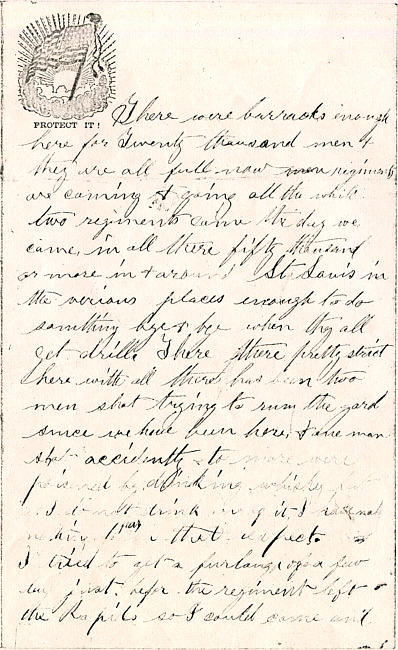 PROTECT IT!
There were barracks enough
here for Twenty thousand men &
they are all full now men regiments
are coming & going all the while
two regiments came the day we
came, in all there fifty thousand
or more in & around St. Louis in
the verious places enough to do
something bye & bye when they all
get drilld There there pretty strict
here with all there has been two
men shot trying to run the gard
since we have been here, & one man
shot accidently to more were
poisened by drinking whisky but
I do not drink any
in that respect.
I tried to get a furlang a few
day just befor the regiment left
the Rapids so I could come and